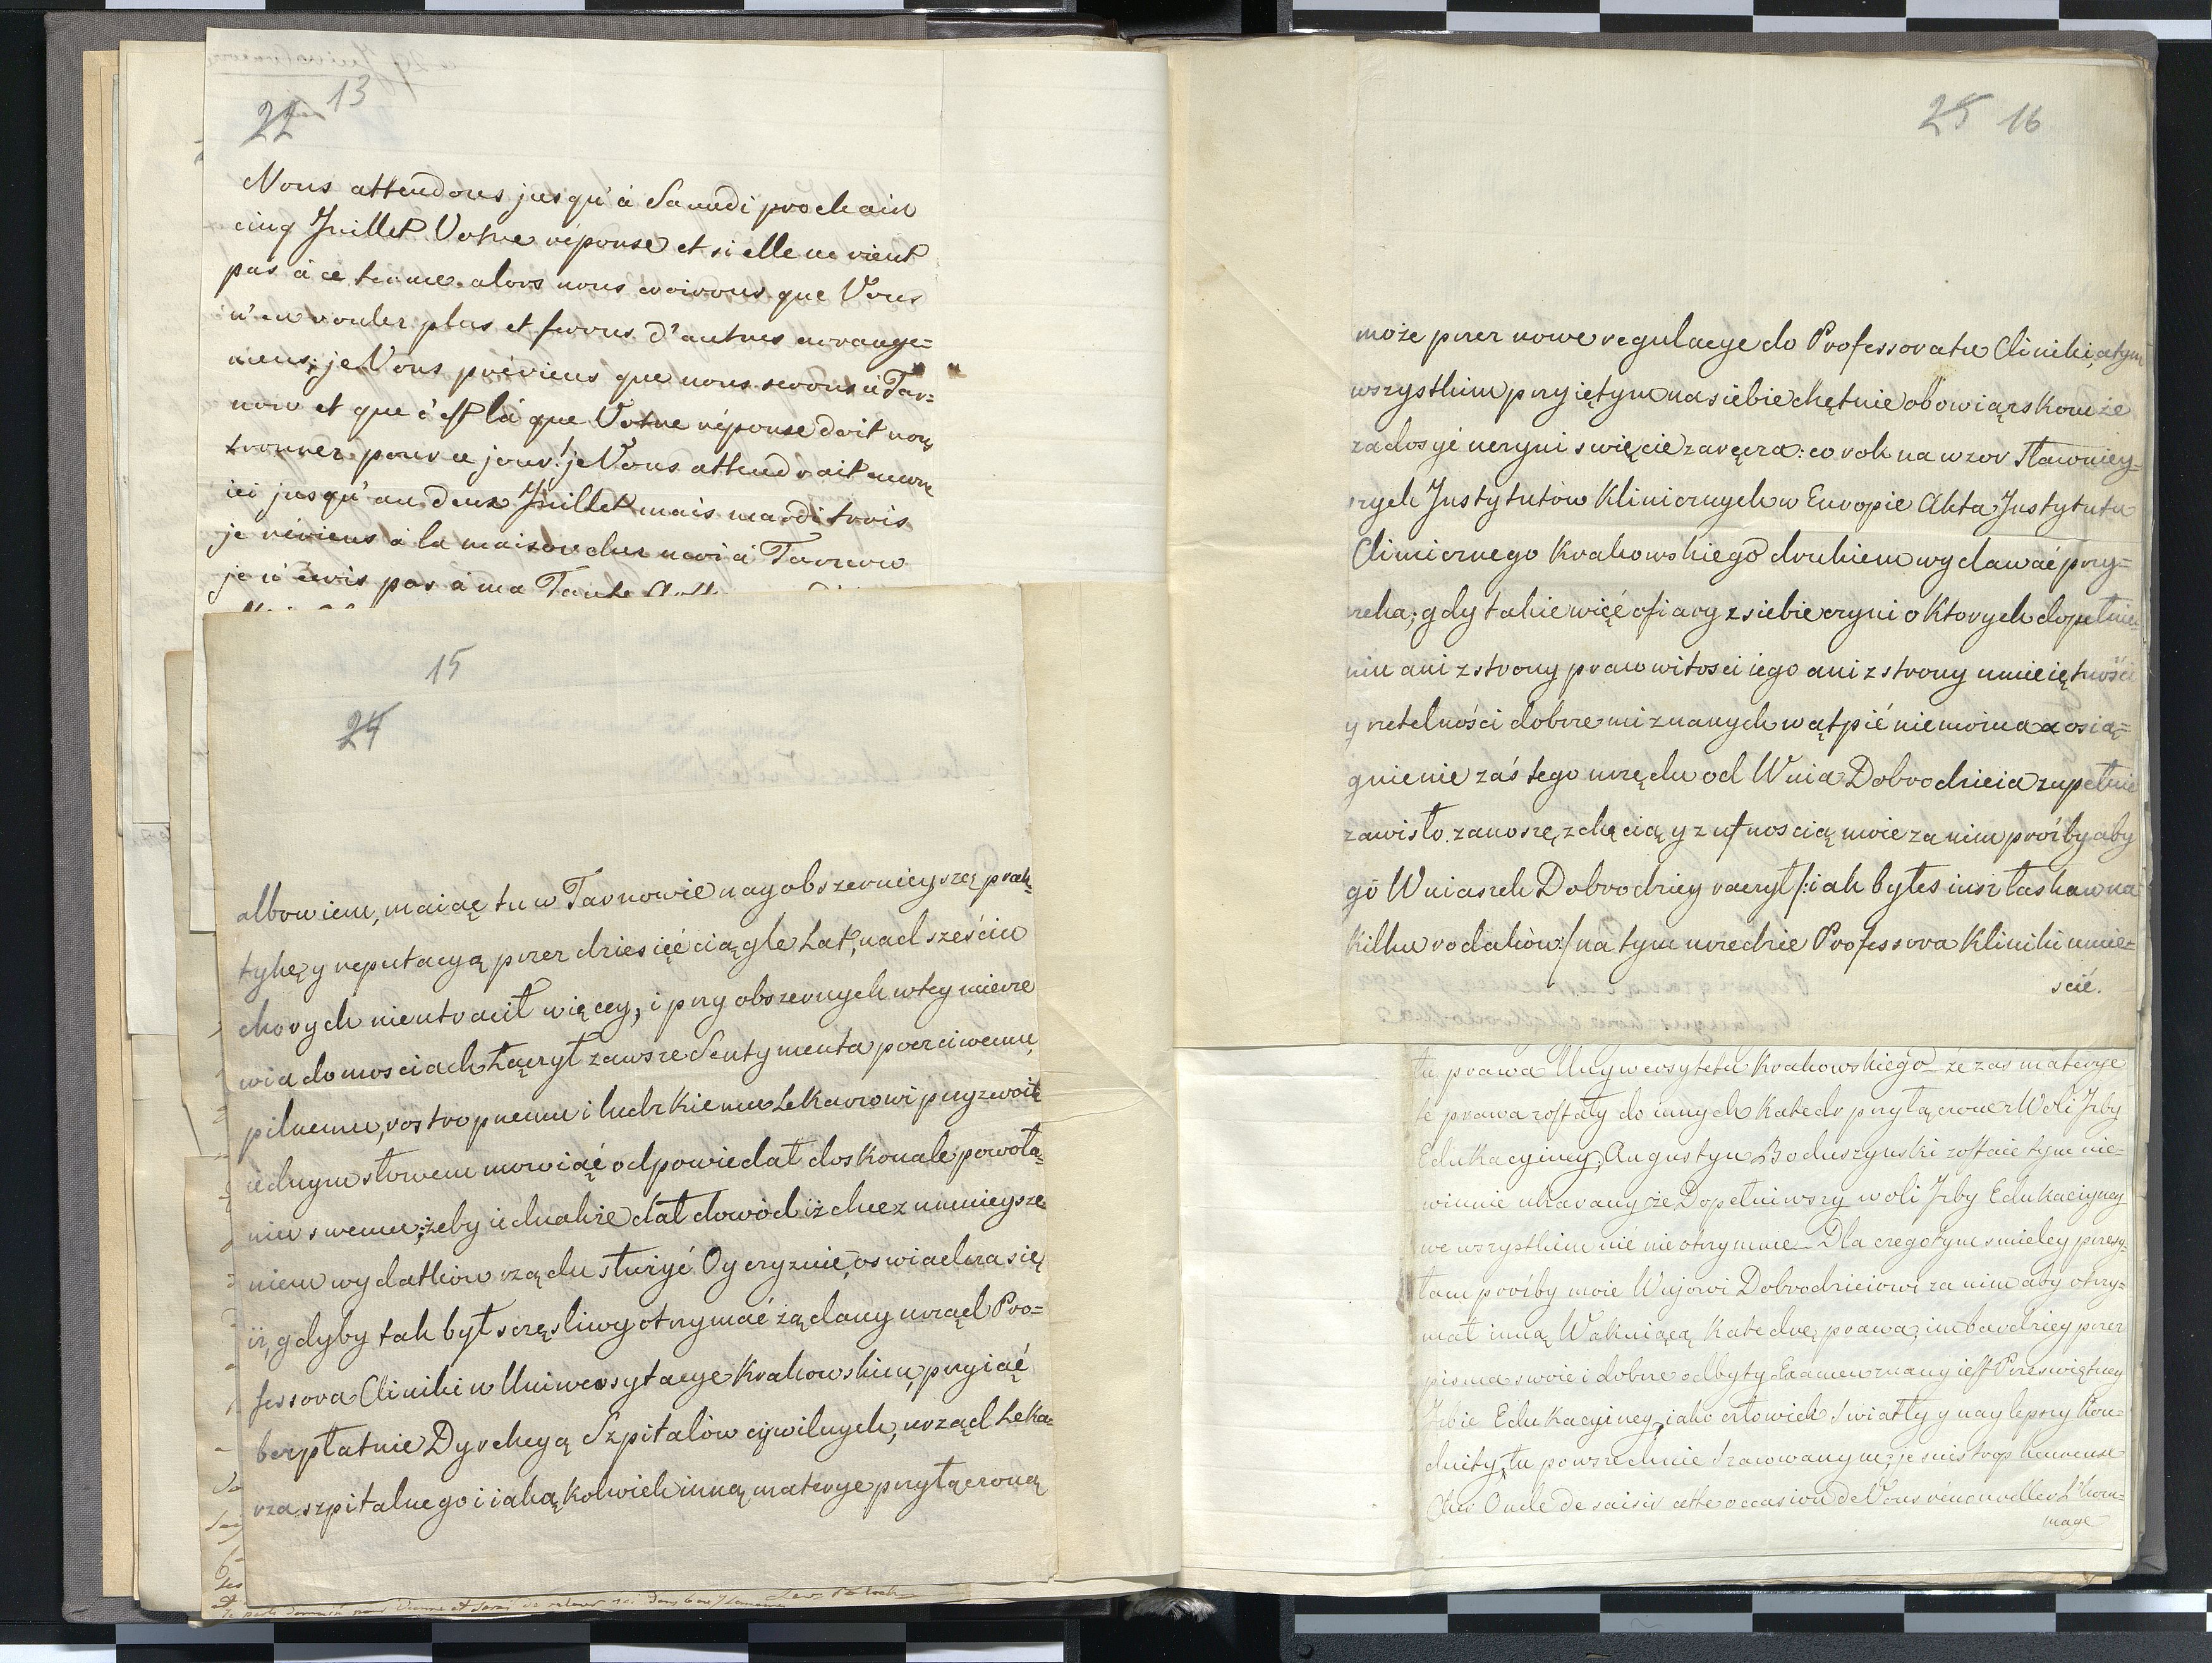 22 13
Nous attendons jusqu'à Samedi prochain
cinq Juillet Votre réponse et si elle ne vient
pas à ce terme alors nous croirons que Vous
n'en voulez plus et ferons d'autres arrange=
mens; je Vous préviens que nous serons à Tar=
now et que c'est là que Votre réponse doit nous
trouver pour ce jour! je Vous attendrait encore
ici jusqu'au deux Juillet mais mardi trois
je réviens à la maison chez moi à Tarnow
je n'écris pas à ma Tante
15
24
albowiem, maiąc tu w Tarnowie nayobszernieyszą prak=
tykę y reputacyą przez dziesięć ciągle Lat, nad sześciu
chorych nieutracił więcey, i przy obszernych w tey mierze
wiadomosciach Łączył zawsze Sentymenta poczciwemu,
pilnemu, rostropnemu i ludzkiemu Lekarzowi przyzwoite
iednym słowem mowiąć odpowiedał doskonale powoła=
niu swemu; żeby iednakże dał dowód iż chce z umnieysze=
niem wydatków rządu służyć Oyczyznie, oswiadcza się
iż, gdyby tak był szczęsliwy otrzymać żądany urząd Pro=
fessora Cliniki w Uniwersytacye Krakowskim, przyiąć
bezpłatnie Dyrekcyą Szpitalów cywilnych, urząd Leka=
rza szpitalnego i iakąkolwiek inną materye przyłączoną
Je parts demain pour Vienne et serai de retour ici dans
25 16
może przez nowe regulacye do Professoratu Cliniki, a tym
wszystkim przyiętym na siebie chętnie obowiązskom że
zadosyć uczyni swięcie zaręcza: co rok na wzor Sławniey=
szych Instytutów Klinicznych w Europie Akta Instytutu
Clinicznego Krakowskiego drukiem wydawać przy=
rzeka; gdy takie więć ofiary z siebie czyni o ktorych dopełnie=
niu ani z strony prawowitosci iego ani z strony umieiętności
y rzetelności dobrze mi znanych wątpić niemożna a osią=
gnienie zaś tego urzędu od Wuia Dobrodzieia zupełnie
zawisło. zanoszę z chęcią y z ufnoscią moie za nim prośby aby
go Wuiaszek Dobrodziey raczył /:iak byłes iusz łaskaw na
kilku rodaków:/ na tym urzedzie Professora Kliniki umie=
scić.
tu prawa Uniwersytetu Krakowskiego że zas materye
te prawa zostały do innych Katedr przyłączone z Woli Izby
Edukacyiney; Augustyn Boduszynski zostaie tym nie=
winnie ukarany że Dopełniwszy woli Izby Edukacyiney
we wszystkim nić nie otrzymuie. Dla czego tym smieley przesy=
łam prośby moie Wujowi Dobrodzieiowi za nim aby otrzy=
mał inną Wakuiącą Katedrę prawa; im bardziey przez
pisma swoie i dobrze odbyty Examen znany iest Przeswiętney
Izbie Edukacyiney, iako człowiek swiatły y naylepszey Kon=
duity, tu powszechnie szacowany mąż, je suis trop heureuse
Cher Oncle de saisir cette occasion de Vous rénouveller L'hom=
mage